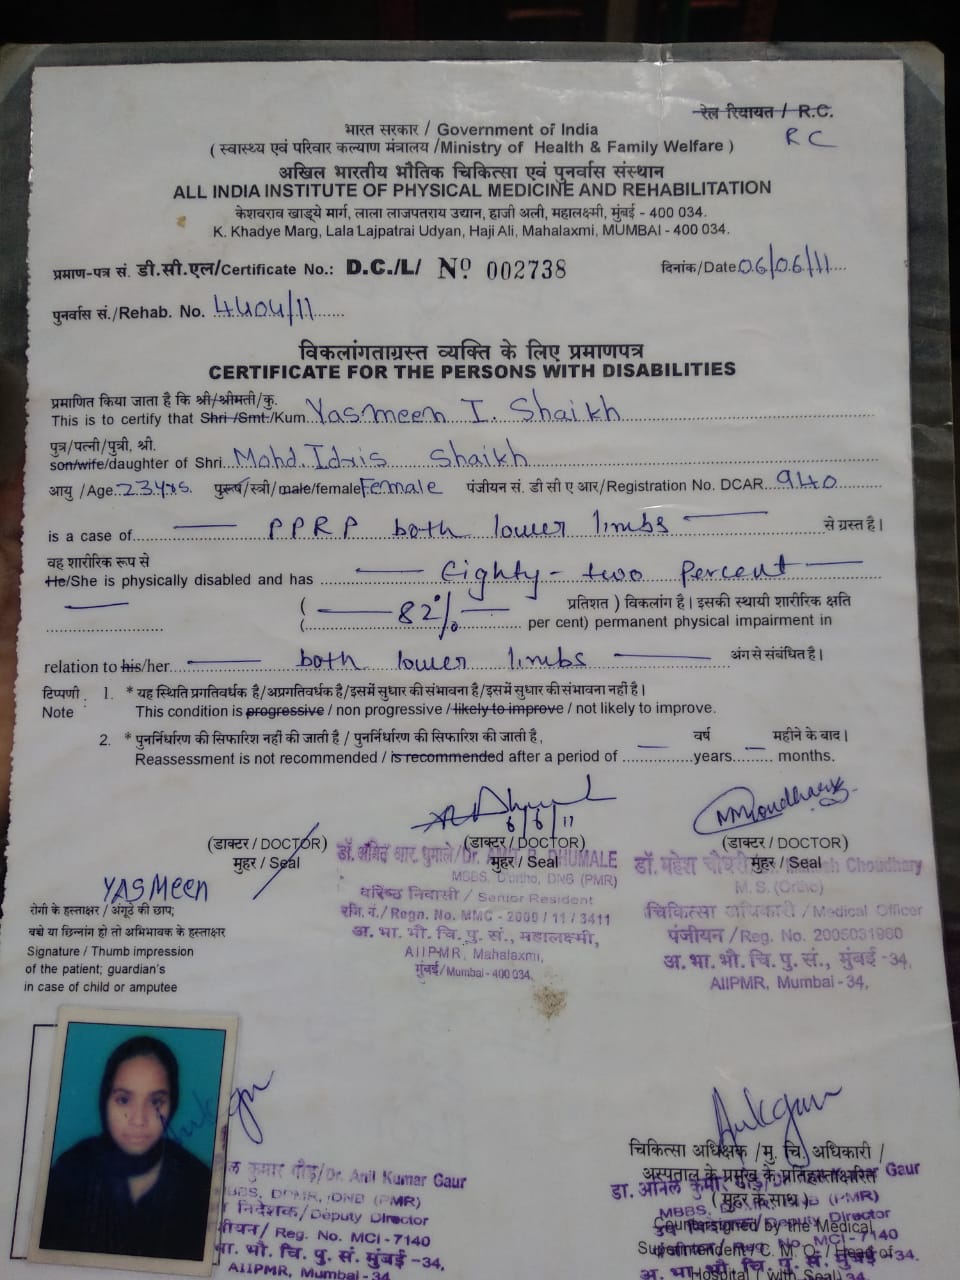 रेल रियायत / R.C.
RC
भारत सरकार / Government of India
( स्वास्थ्य एवं परिवार कल्याण मंत्रालय /Ministry of Health & Family Welfare )
अखिल भारतीय भौतिक चिकित्सा एवं पुनर्वास संस्थान
ALL INDIA INSTITUTE OF PHYSICAL MEDICINE AND REHABILITATION
केशवराव खाड्ये मार्ग, लाला लाजपतराय उद्यान, हाजी अली, महालक्ष्मी, मुंबई - 400 034.
K. Khadye Marg, Lala Lajpatrai Udyan, Haji Ali, Mahalaxmi, MUMBAI - 400 034.
प्रमाण-पत्र सं. डी.सी.एल/Certificate No.: D.C./L/ Nº 002738 दिनांक/Date 06/06/11
पुनर्वास सं./Rehab. No. 4404/11
विकलांगताग्रस्त व्यक्ति के लिए प्रमाणपत्र
CERTIFICATE FOR THE PERSONS WITH DISABILITIES
प्रमाणित किया जाता है कि श्री/श्रीमती/कु.
This is to certify that Shri /Smt./Kum Yasmeen I. Shaikh
पुत्र/पत्नी/पुत्री, श्री.
son/wife/daughter of Shri Mohd. Idris Shaikh
आयु /Age 23yrs. पुरूष/स्त्री/ male/female Female पंजीयन सं. डी सी ए आर/Registration No. DCAR 940
is a case of PPRP both lower limbs से ग्रस्त है।
वह शारीरिक रूप से
He/She is physically disabled and has Eighty-two Percent
( 82% प्रतिशत ) विकलांग है। इसकी स्थायी शारीरिक क्षति
per cent) permanent physical impairment in
relation to his/her both lower limbs अंग से संबंधित है।
टिप्पणी : 1. * यह स्थिति प्रगतिवर्धक है/अप्रगतिवर्धक है/इसमें सुधार की संभावना है/इसमें सुधार की संभावना नहीं है।
Note This condition is progressive / non progressive / likely to improve / not likely to improve.
2. * पुनर्निर्धारण की सिफारिश नहीं की जाती है / पुनर्निर्धारण की सिफारिश की जाती है, वर्ष महीने के बाद।
Reassessment is not recommended / is recommended after a period of years months.
6/6/11
(डाक्टर / DOCTOR) (डाक्टर / DOCTOR) (डाक्टर / DOCTOR)
मुहर / Seal मुहर / Seal मुहर / Seal
डॉ. अमित आर. धुमाले/Dr. AMIT R. DHUMALE
MBBS, D'ortho, DNB (PMR)
वरिष्ठ निवासी / Senior Resident
रजि. नं./ Regn. No. MMC - 2000 / 11 / 3411
अ. भा. भौ. चि. पु. सं., महालक्ष्मी,
AIIPMR, Mahalaxmi,
मुंबई/Mumbai - 400 034.
डॉ. महेश चौधरी Choudhary
M.S. (Ortho)
चिकित्सा अधिकारी / Medical Officer
पंजीयन / Reg. No. 2005031960
अ. भा. भौ. चि. पु. सं., मुंबई -34,
AIIPMR, Mumbai - 34,
YASMeen
रोगी के हस्ताक्षर / अंगूठे की छाप;
बच्चे या छिन्नांग हो तो अभिभावक के हस्ताक्षर
Signature / Thumb impression
of the patient; guardian's
in case of child or amputee
कुमार गौड़/Dr. Anil Kumar Gaur
MBBS, DPMR, DNB (PMR)
निदेशक/Deputy Director
पंजीयन/ Reg. No. MCI - 7140
भा. भौ. चि. पु. सं. मुंबई -34,
AIIPMR, Mumbai - 34
चिकित्सा अधिक्षक /मु. चि. अधिकारी /
अस्पताल के प्रमुख के प्रतिहस्ताक्षरित
( मुहर के साथ )
Countersigned by the Medical
Superintendent / C. M. O. / Head of
Hospital ( with Seal)
डा. अनिल कुमार Gaur
MBBS, (PMR)
Director
Reg. No. MCI - 7140